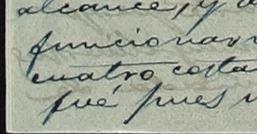 alcance, y
funcionar
cuatro costa
fué pues